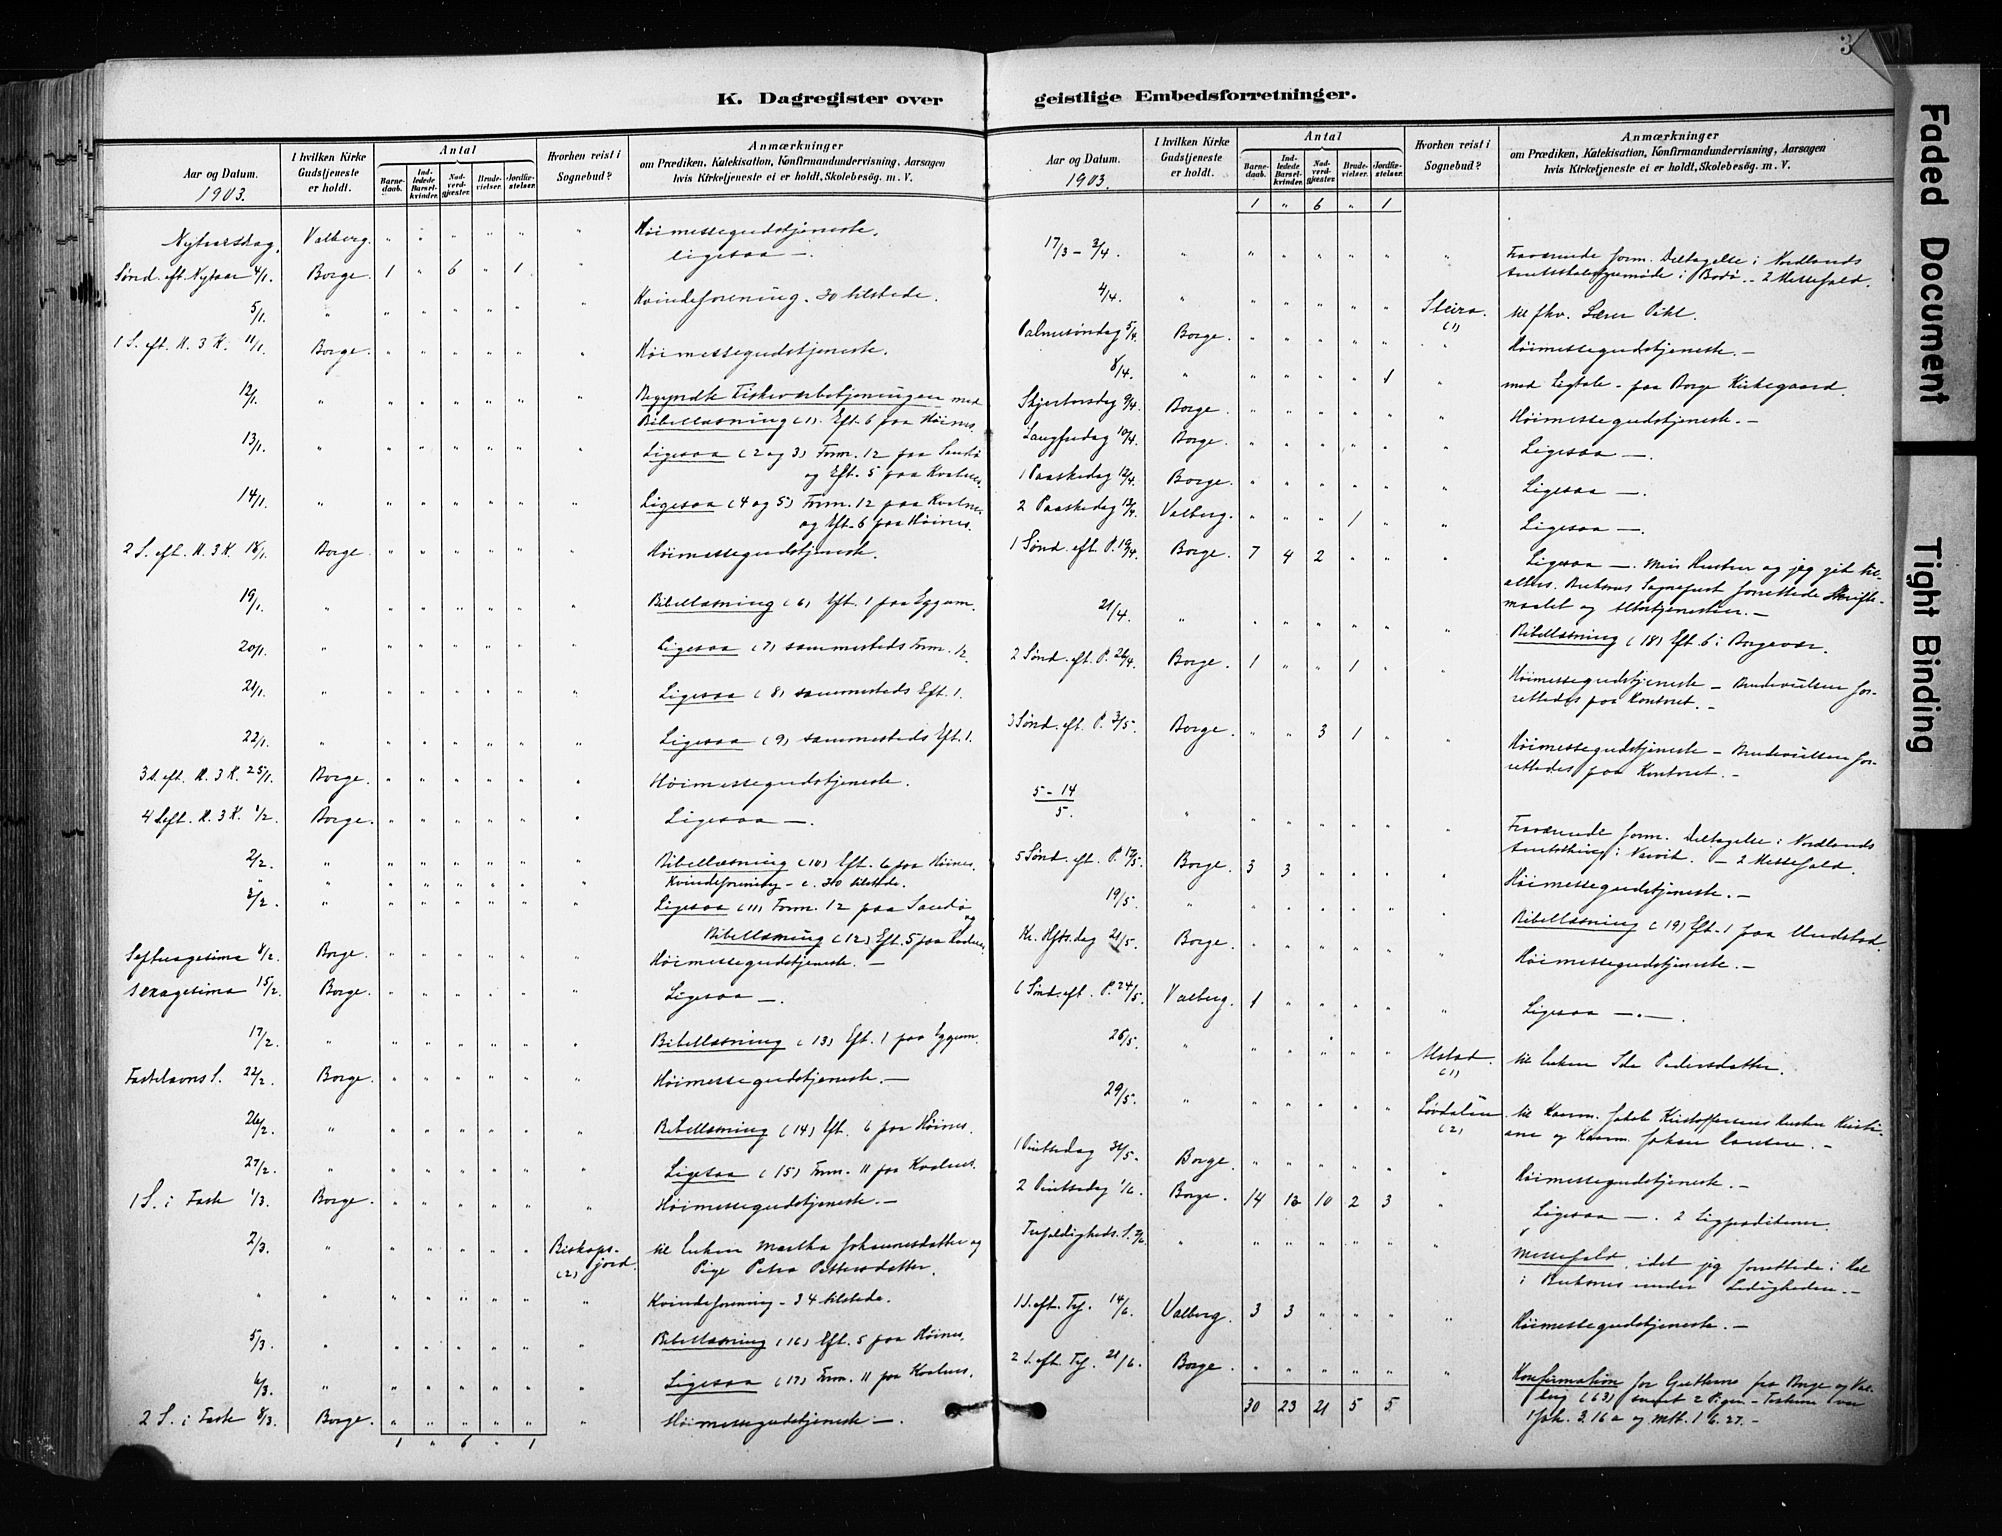 K. Dagregister over geistlige Embedsforretninger.
3
Aar og Datum.
1903.
I hvilken Kirke Gudstjeneste er holdt.
Antal
Barnedaab.
Indledede Barselkvinder.
Nadverdgjester.
Brudevielser.
Jordfæstelser.
Hvorhen reist i Sognebud?
Anmærkninger
om Prædiken, Katekisation, Konfirmandundervisning, Aarsagen
hvis Kirketjeneste ei er holdt, Skolebesøg. m. V.
Nytaarsdag. Valberg. " " " " " " Høimessegudstjeneste.
Sønd. eft. Nytaar 4/1. Borge. 1 " 6 " 1 " Ligesaa —.
5/1. " " " " " " " Kvindeforening. 30 tilstede.
1 S. eft. H. 3 K. 11/1. Borge. " " " " " " Høimessegudstjeneste.
12/1. " " " " " " " Begyndte Fiskerarbetjeningen med
Bibellæsning (1). Eft. 6 paa Høines.
13/1. " " " " " " " Ligesaa (2 og 3) Form. 12 paa Sandø
og Eft. 5 paa Kvalnes.
14/1. " " " " " " " Ligesaa (4 og 5) Form. 12 paa Kvalnes
og Eft. 6 paa Høines.
2 S. eft. H. 3 K. 18/1. Borge. " " " " " " Høimessegudstjeneste.
19/1. " " " " " " " Bibellæsning (6) Eft. 1 paa Eggum.
20/1. " " " " " " " Ligesaa (7) sammesteds Form. 12.
21/1. " " " " " " " Ligesaa (8) sammesteds Eft. 1.
22/1. " " " " " " " Ligesaa (9) sammesteds Eft. 1.
3 S. eft. H. 3 K. 25/1. Borge. " " " " " " Høimessegudstjeneste.
4 S. eft. H. 3 K. 1/2. Borge. " " " " " " Ligesaa —.
2/2. " " " " " " " Bibellæsning (10) Eft. 6 paa Høines.
" " " " " " " " Kvindeforening – c. 30 tilstede.
3/2. " " " " " " " Ligesaa (11) Form. 12 paa Sandø og
Bibellæsning (12) Eft. 5 paa Kvalnes.
Septuagesima 8/2. Borge. " " " " " " Høimessegudstjeneste. —
Sexagesima 15/2. Borge. " " " " " " Ligesaa —.
17/2. " " " " " " " Bibellæsning (13) Eft. 1 paa Eggum.
Fastelavns S. 22/2. Borge. " " " " " " Høimessegudstjeneste. —
26/2. " " " " " " " Bibellæsning (14) Eft. 6 paa Høines.
27/2. " " " " " " " Ligesaa (15) Form. 11 paa Kvalnes.
1 S. i Faste 1/3. Borge. " " " " " " Høimessegudstjeneste. —
2/3. " " " " " " Biskopsjord. (2) til Enken Martha Johannesdatter og
Pige Petra Pettersdatter.
" " " " " " " " Kvindeforening – 34 tilstede.
5/3. " " " " " " " Bibellæsning (16) Eft. 5 paa Høines.
6/3. " " " " " " " Ligesaa (17) Form. 11 paa Kvalnes.
2 S. i Faste 8/3. Borge. " " " " " " Høimessegudstjeneste. —
1 " 6 " 1
Aar og Datum.
1903.
I hvilken Kirke Gudstjeneste er holdt.
Antal
Barnedaab.
Indledede Barselkvinder.
Nadverdgjester.
Brudevielser.
Jordfæstelser.
Hvorhen reist i Sognebud?
Anmærkninger
om Prædiken, Katekisation, Konfirmandundervisning, Aarsagen
hvis Kirketjeneste ei er holdt, Skolebesøg. m. V.
1 " 6 " 1
17/3 – 3/4. " " " " " " " Fraværende form. Deltagelse i Nordlands
i Bodø. – 2 Messefald.
4/4. " " " " " " Steira. (1) til fhv. Lærer Pihl.
Palmesøndag 5/4. Borge. " " " " " " Høimessegudstjeneste. —
8/4. " " " " " 1 " med Ligtale – paa Borge Kirkegaard.
Skjertorsdag 9/4. Borge. " " " " " " Høimessegudstjeneste. —
Langfredag 10/4. Borge. " " " " " " Ligesaa —.
1 Paaskedag 12/4. Borge. " " " " " " Ligesaa —.
2 Paaskedag 13/4. Valberg. " " " 1 " " Ligesaa —.
1 Sønd. eft. P. 19/4. Borge. 7 4 2 " " " Ligesaa —. Min Hustru og jeg gik til
alters. Buksnes Sogneprest forrettede Skriftemaalet
og Altertjenesten. —
21/4. " " " " " " " Bibellæsning (18) Eft. 6 i Borgevær.
2 Sønd. eft. P. 26/4. Borge. 1 " " 1 " " Høimessegudstjeneste – Brudevielsen forrettedes
paa Kontoret. —
3 Sønd. eft. P. 3/5. Borge. " " 3 1 " " Høimessegudstjeneste – Brudevielsen forrettedes
paa Kontoret. —
5 – 14/5. " " " " " " " Fraværende form. Deltagelse i Nordlands
Amtsthing i Narvik. – 2 Messefald.
5 Sønd. eft. P. 17/5. Borge. 3 3 " " " " Høimessegudstjeneste. —
19/5. " " " " " " " Bibellæsning (19) Eft. 1 paa Unstad.
Kr. Hfts. dag 21/5. Borge. " " " " " " Høimessegudstjeneste. —
6 Sønd. eft. P. 24/5. Valberg. 1 " " " " " Ligesaa —.—.
26/5. " " " " " " Ulstad. (1) til Enken Ida Pedersdatter.
29/5. " " " " " " Løvdalen (2) til Kaarm. Jakob Kristoffersens Enken Kristiane
og Kaarm. Johan
1 Pintsedag 31/5. Borge. " " " " " " Høimessegudstjeneste. —
2 Pintsedag 1/6. Borge. 14 12 10 2 3 " Ligesaa —. 2 Ligprædikener.
Trefoldigheds. S. 7/6. " " " " " " " Messefald, idet jeg forrettede i Hol
i Buksnes under Ledigheden. —
1 S. eft. Tref. 14/6. Valberg. 3 3 " " " " Høimessegudstjeneste. —
2 S. eft. Tref. 21/6. Borge. " " " " " " Konfirmation for Gutterne fra Borge og Valberg
(63) samt 2 Piger. –
1 Joh. 3.16 a og Mtt. 16.27. —
30 23 21 5 5
Faded Document
Tight Binding